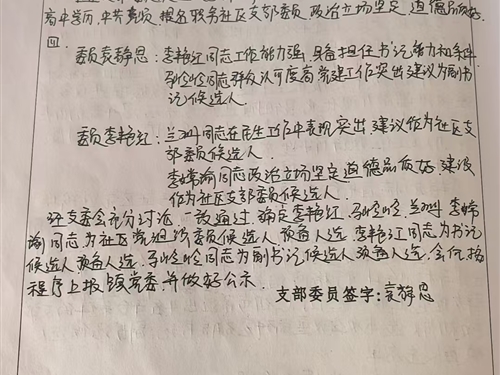 高中学历,中共党员,提名职务社区支部委员,政治立场坚定,道德品质好。
四.
委员袁静思:李艳江同志工作能力强,具备担任书记能力和条件
同志群众认可度高党建工作突出建议为副书
记候选人.
委员李艳江:兰 同志在民生工作中表现突出 建议作为社区支
部委员候选人.
李嫦瑜同志政治立场坚定道德品质好 建议
作为社区支部委员候选人.
经支委会充分讨论,一致通过 确定李艳江,马 ,兰 李嫦
瑜同志为社区党 委员候选人 预备人选,李艳江同志为书记
候选人预备人选,马 同志为副书记候选人预备人选,会后按
程序上报镇党委并做好公示.
支部委员签字:袁静思